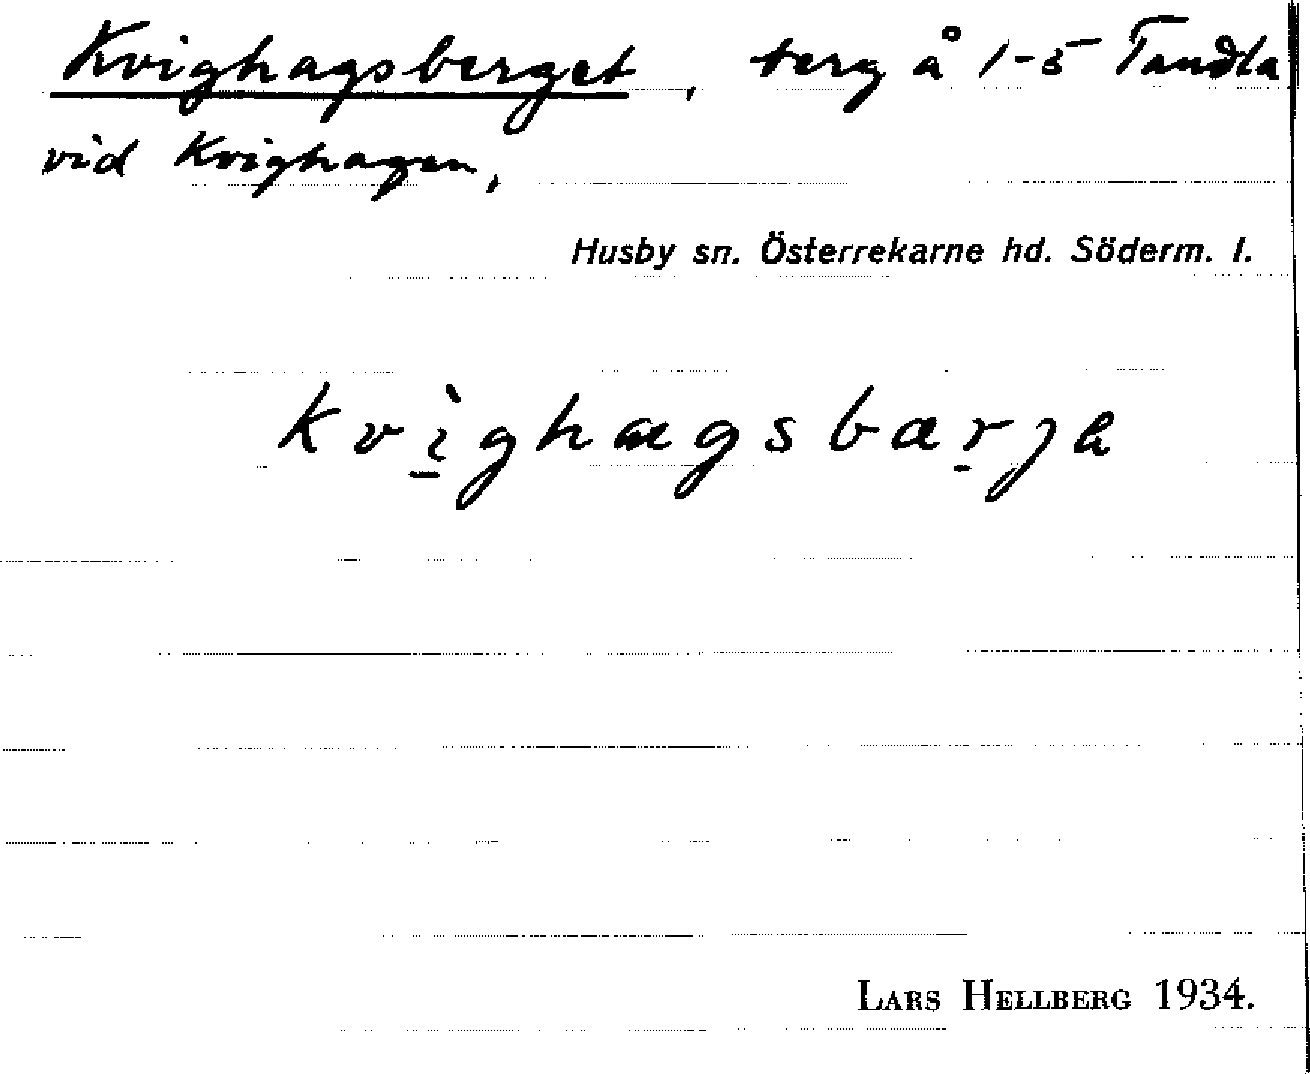 Kvighagsberget, berg å 1-5 Tandla
vid Kvighagen,
Husby sn. Österrekarne hd. Söderm. l.
kvìghagsbærje
LARS HELLBERG 1934.